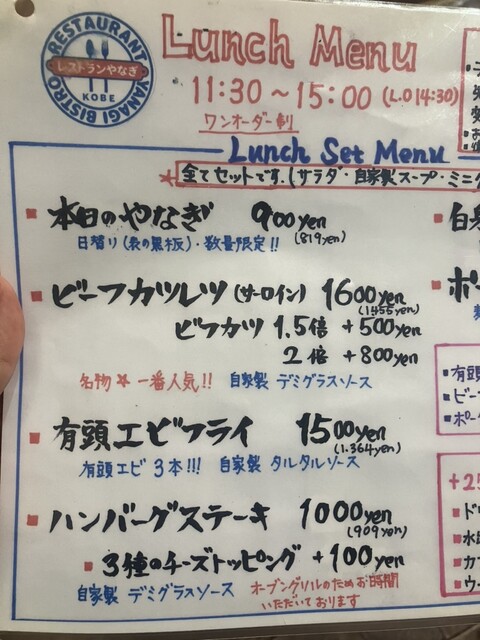 RESTAURANT
レストランやなぎ
KOBE
YANAGI BISTRO
Lunch Menu
11:30～15:00 (L.O 14:30)
ワンオーダー制
Lunch Set Menu
★全てセットです。(サラダ・自家製スープ・ミニ
■本日のやなぎ 900yen
(819yen)
日替り(表の黒板)・数量限定!!
■ビーフカツレツ(サーロイン) 1600yen
(1455yen)
ビフカツ 1.5倍 +500yen
2倍 +800yen
名物★一番人気!! 自家製 デミグラスソース
■有頭エビフライ 1500yen
(1.364yen)
有頭エビ 3本!!! 自家製 タルタルソース
■ハンバーグステーキ 1000yen
(909yen)
■3種のチーズトッピング +100yen
自家製 デミグラスソース オーブングリルのためお時間
いただいております
■ポー
■有頭
■ビー
■ポー
+25
■カフ
■ウー